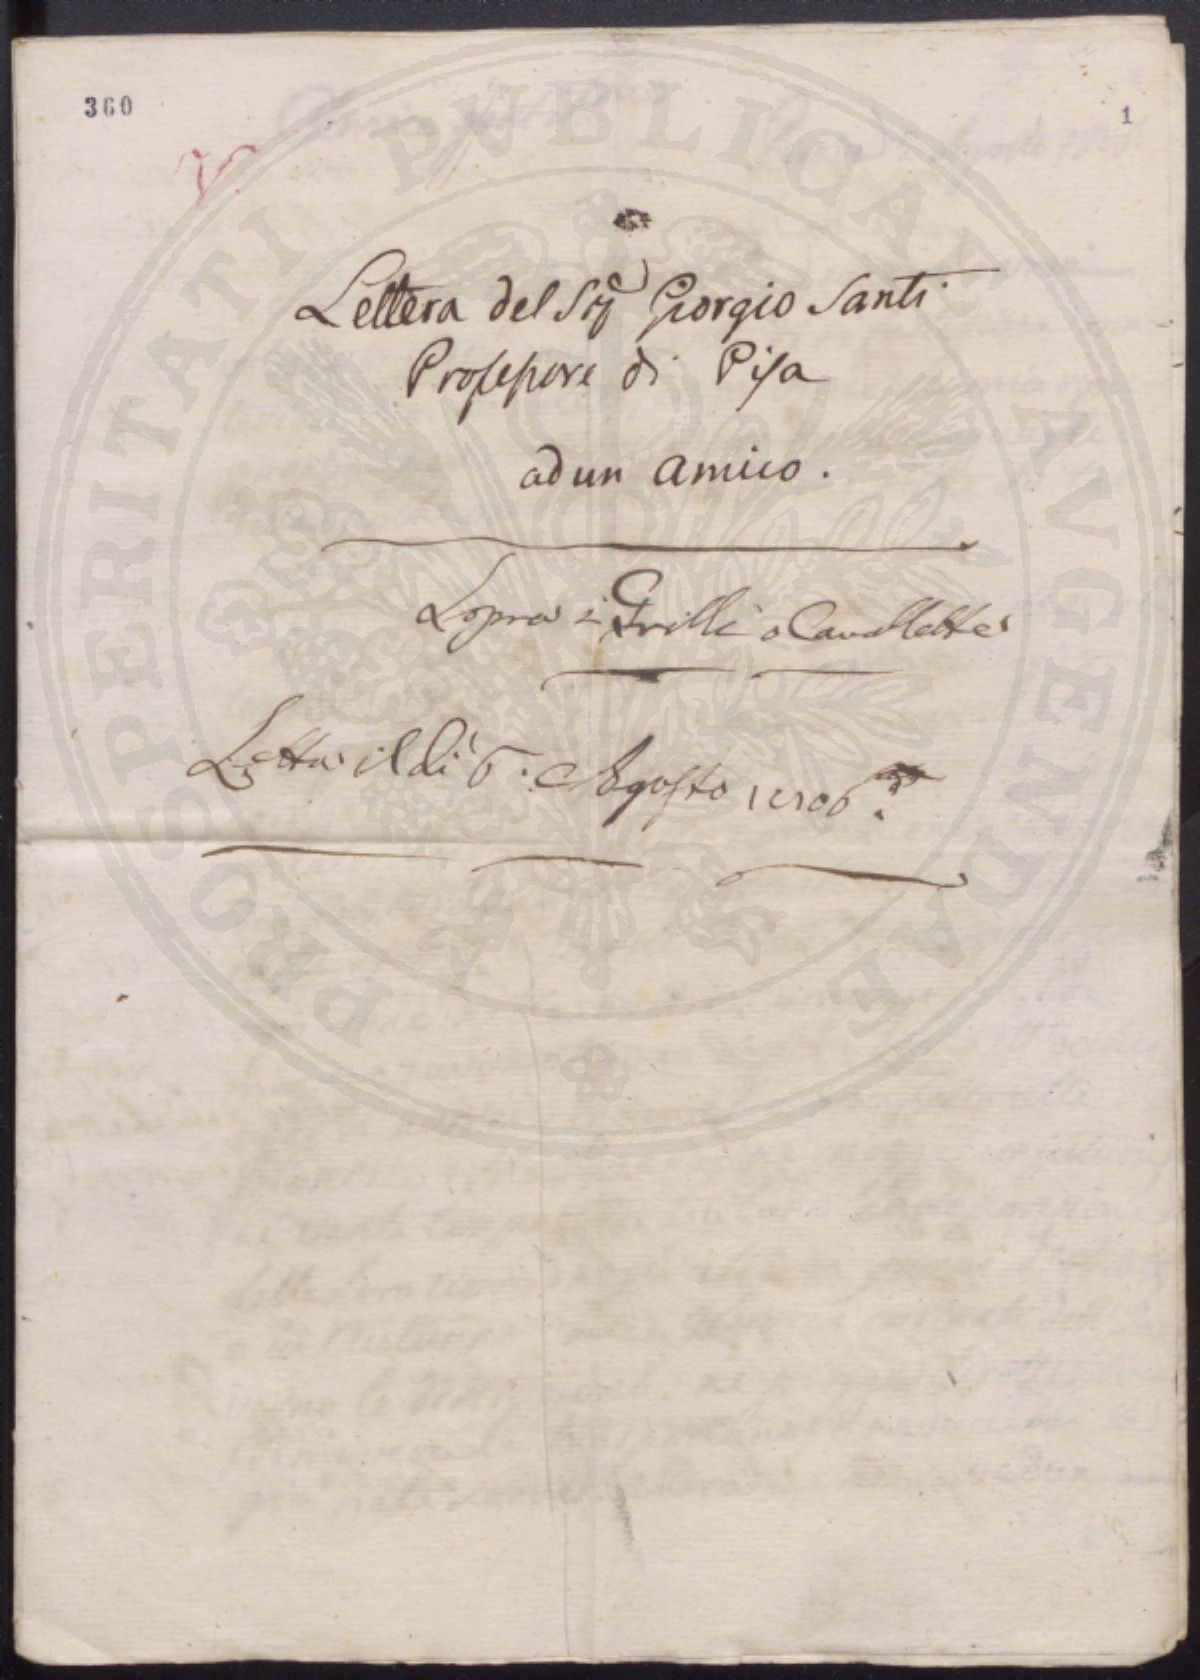 360
1
Lettera del Sigr Giorgio Santi
Professore di Pisa
ad un Amico.
Sopra i Grilli o Cavallette
Letta il dì 6. Agosto 1806.
PROSPERITATI PVBLICAE AVGENDAE